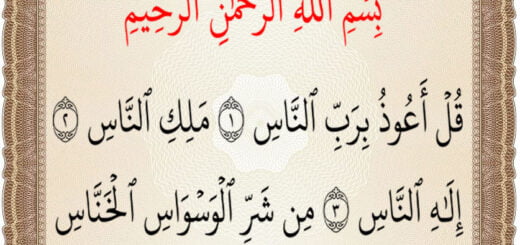 بِسْمِ اللَّهِ الرَّحْمَٰنِ الرَّحِيمِ
قُلْ أَعُوذُ بِرَبِّ ٱلنَّاسِ ١ مَلِكِ ٱلنَّاسِ ٢
إِلَٰهِ ٱلنَّاسِ ٣ مِن شَرِّ ٱلْوَسْوَاسِ ٱلْخَنَّاسِ